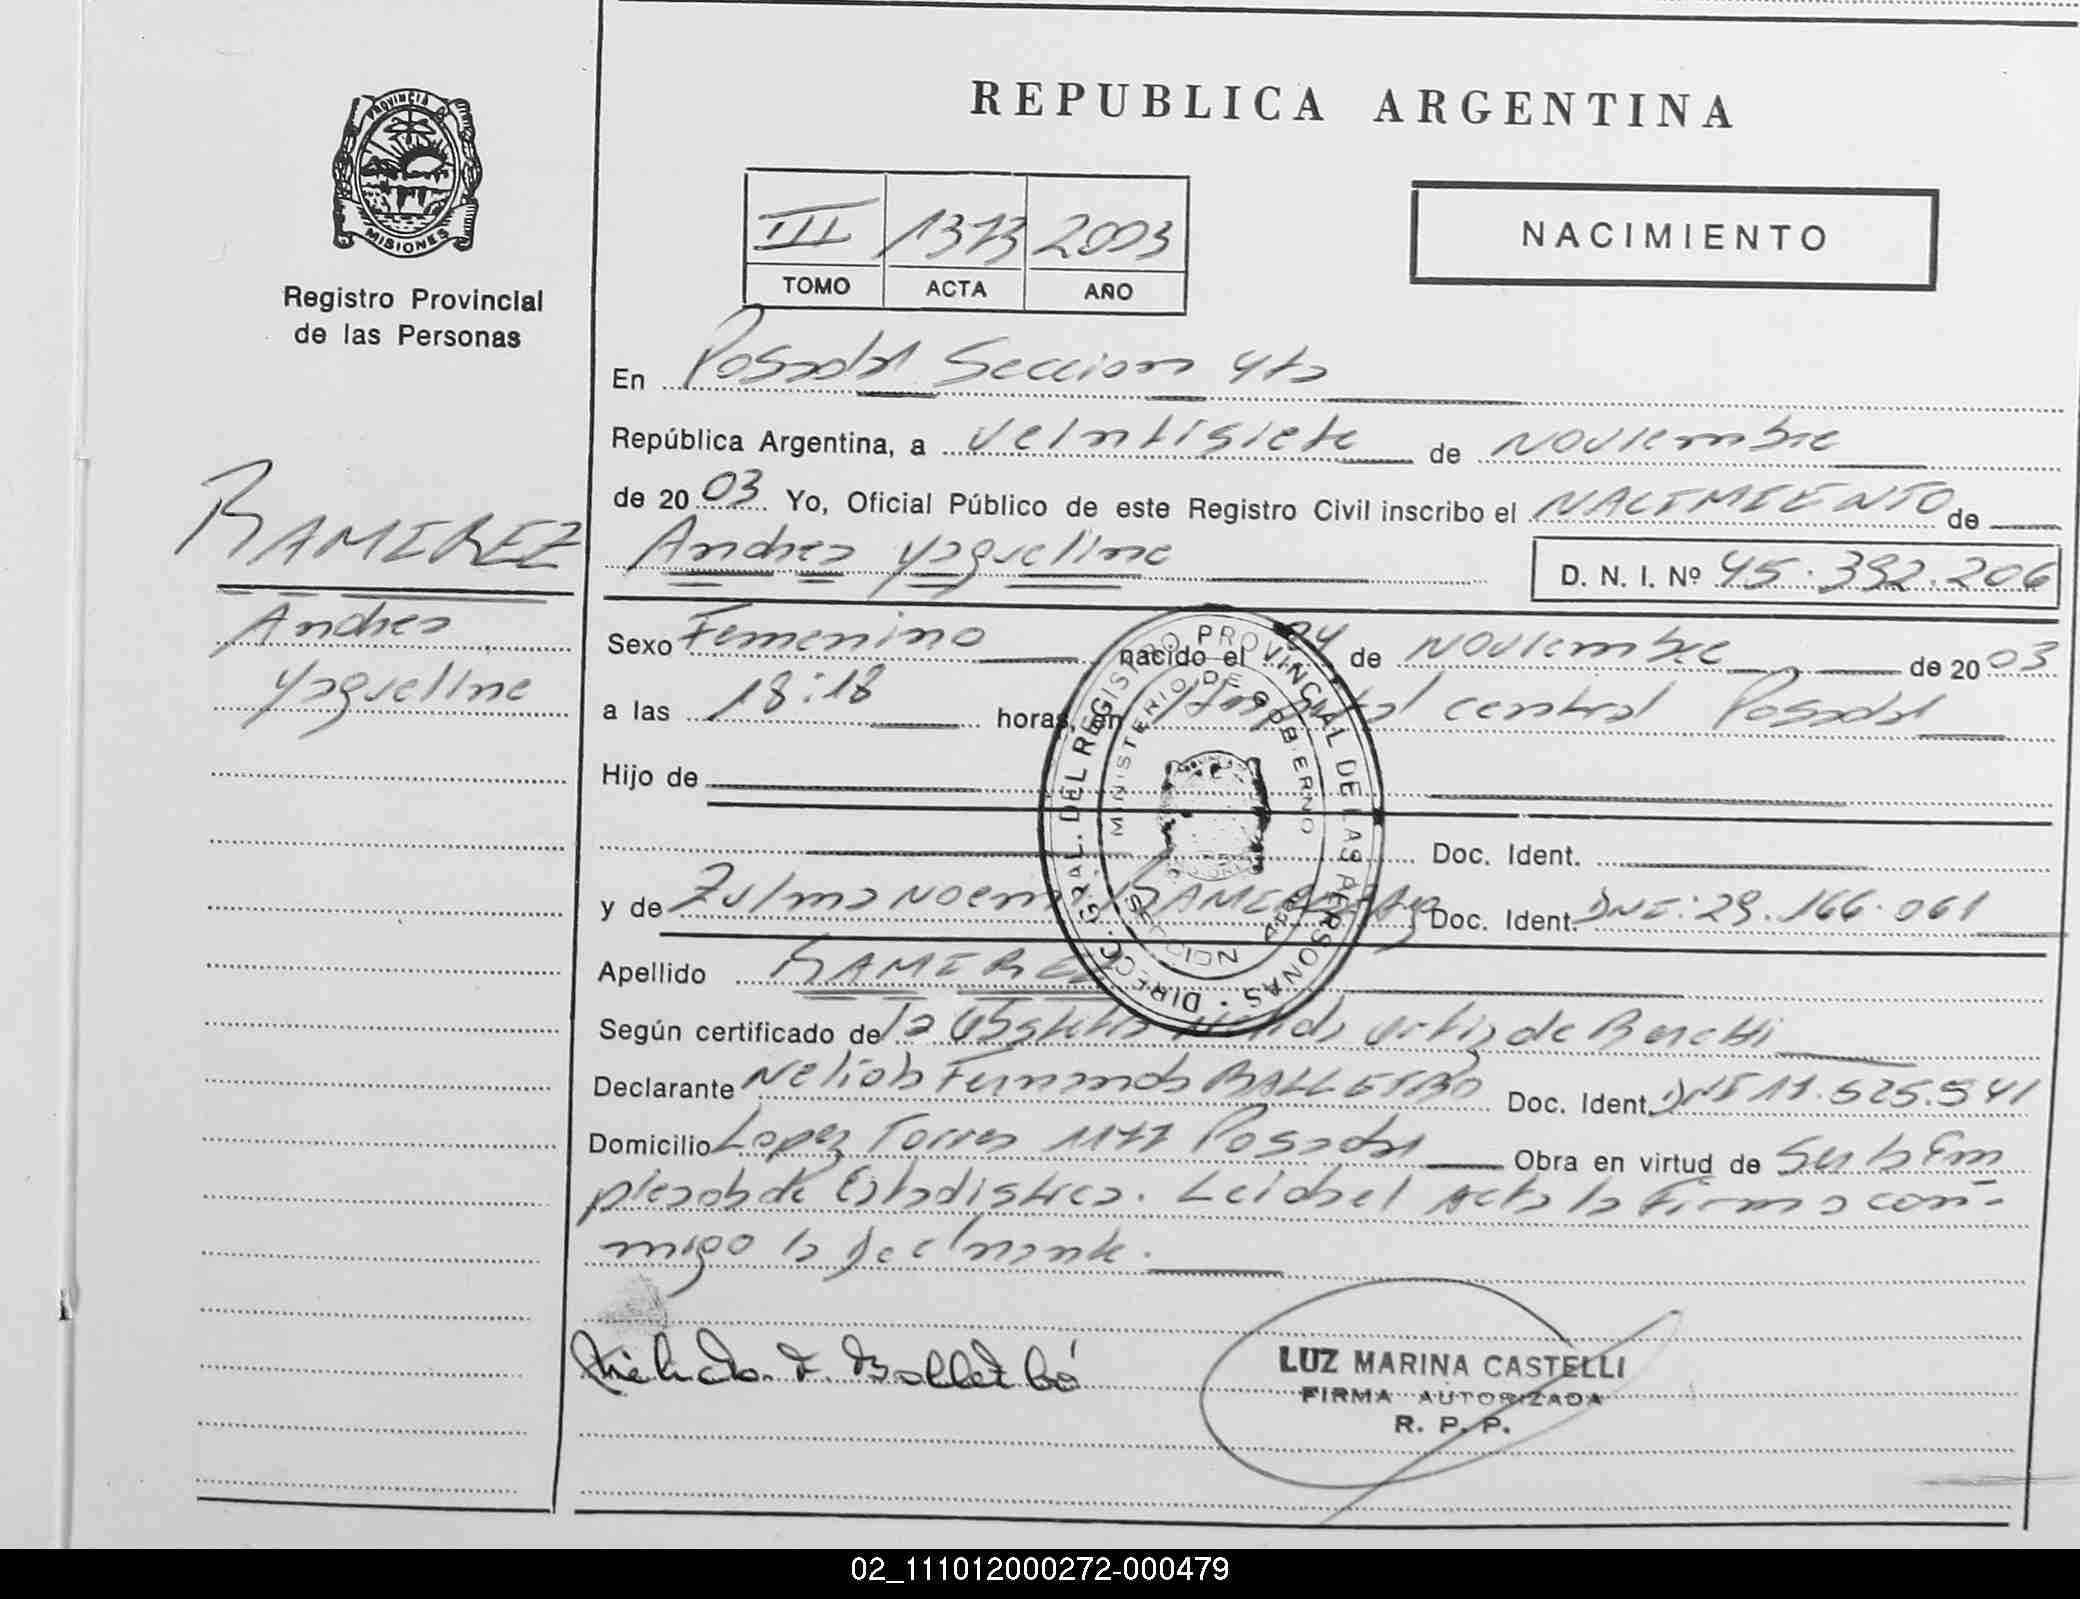 PROVINCIA DE
MISIONES
Registro Provincial
de las Personas
RAMIREZ
Andrea
Yaqueline
REPUBLICA ARGENTINA
III 1373 2003
TOMO ACTA AÑO
NACIMIENTO
En Posadas Seccion 4ta
República Argentina, a veintisiete de Noviembre
de 2003 Yo, Oficial Público de este Registro Civil inscribo el NACIMIENTO de
Andrea Yaqueline D. N. I. Nº 45.392.206
Sexo Femenino nacido el 04 de Noviembre de 2003
a las 18:18 horas, en Hospital central Posadas
Hijo de
Doc. Ident.
y de Zulma Noemi RAMIREZ Arg Doc. Ident. DNI: 29.166.061
Apellido RAMIREZ
Según certificado de la Obstetra Ortiz de
Declarante Fernanda Doc. Ident. DNI 11.525.941
Domicilio Lopez Torres 1177 Posadas Obra en virtud de Su b Em
pleada de Estadistica. Leida el Acta la Firma con-
migo la Declarante.
DIRECC. GRAL. DEL REGISTRO PROVINCIAL DE LAS PERSONAS
MINISTERIO DE GOBIERNO
SECCION
LUZ MARINA CASTELLI
FIRMA AUTORIZADA
R. P. P.
02_111012000272-000479